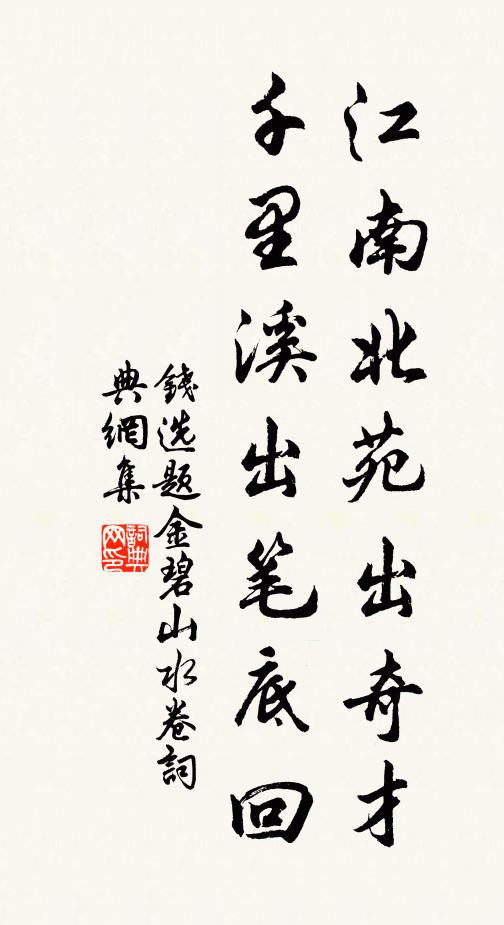 江南北苑出奇才
千里溪出笔底回
錢选题金碧山水卷詞
典網集
詞典
网印